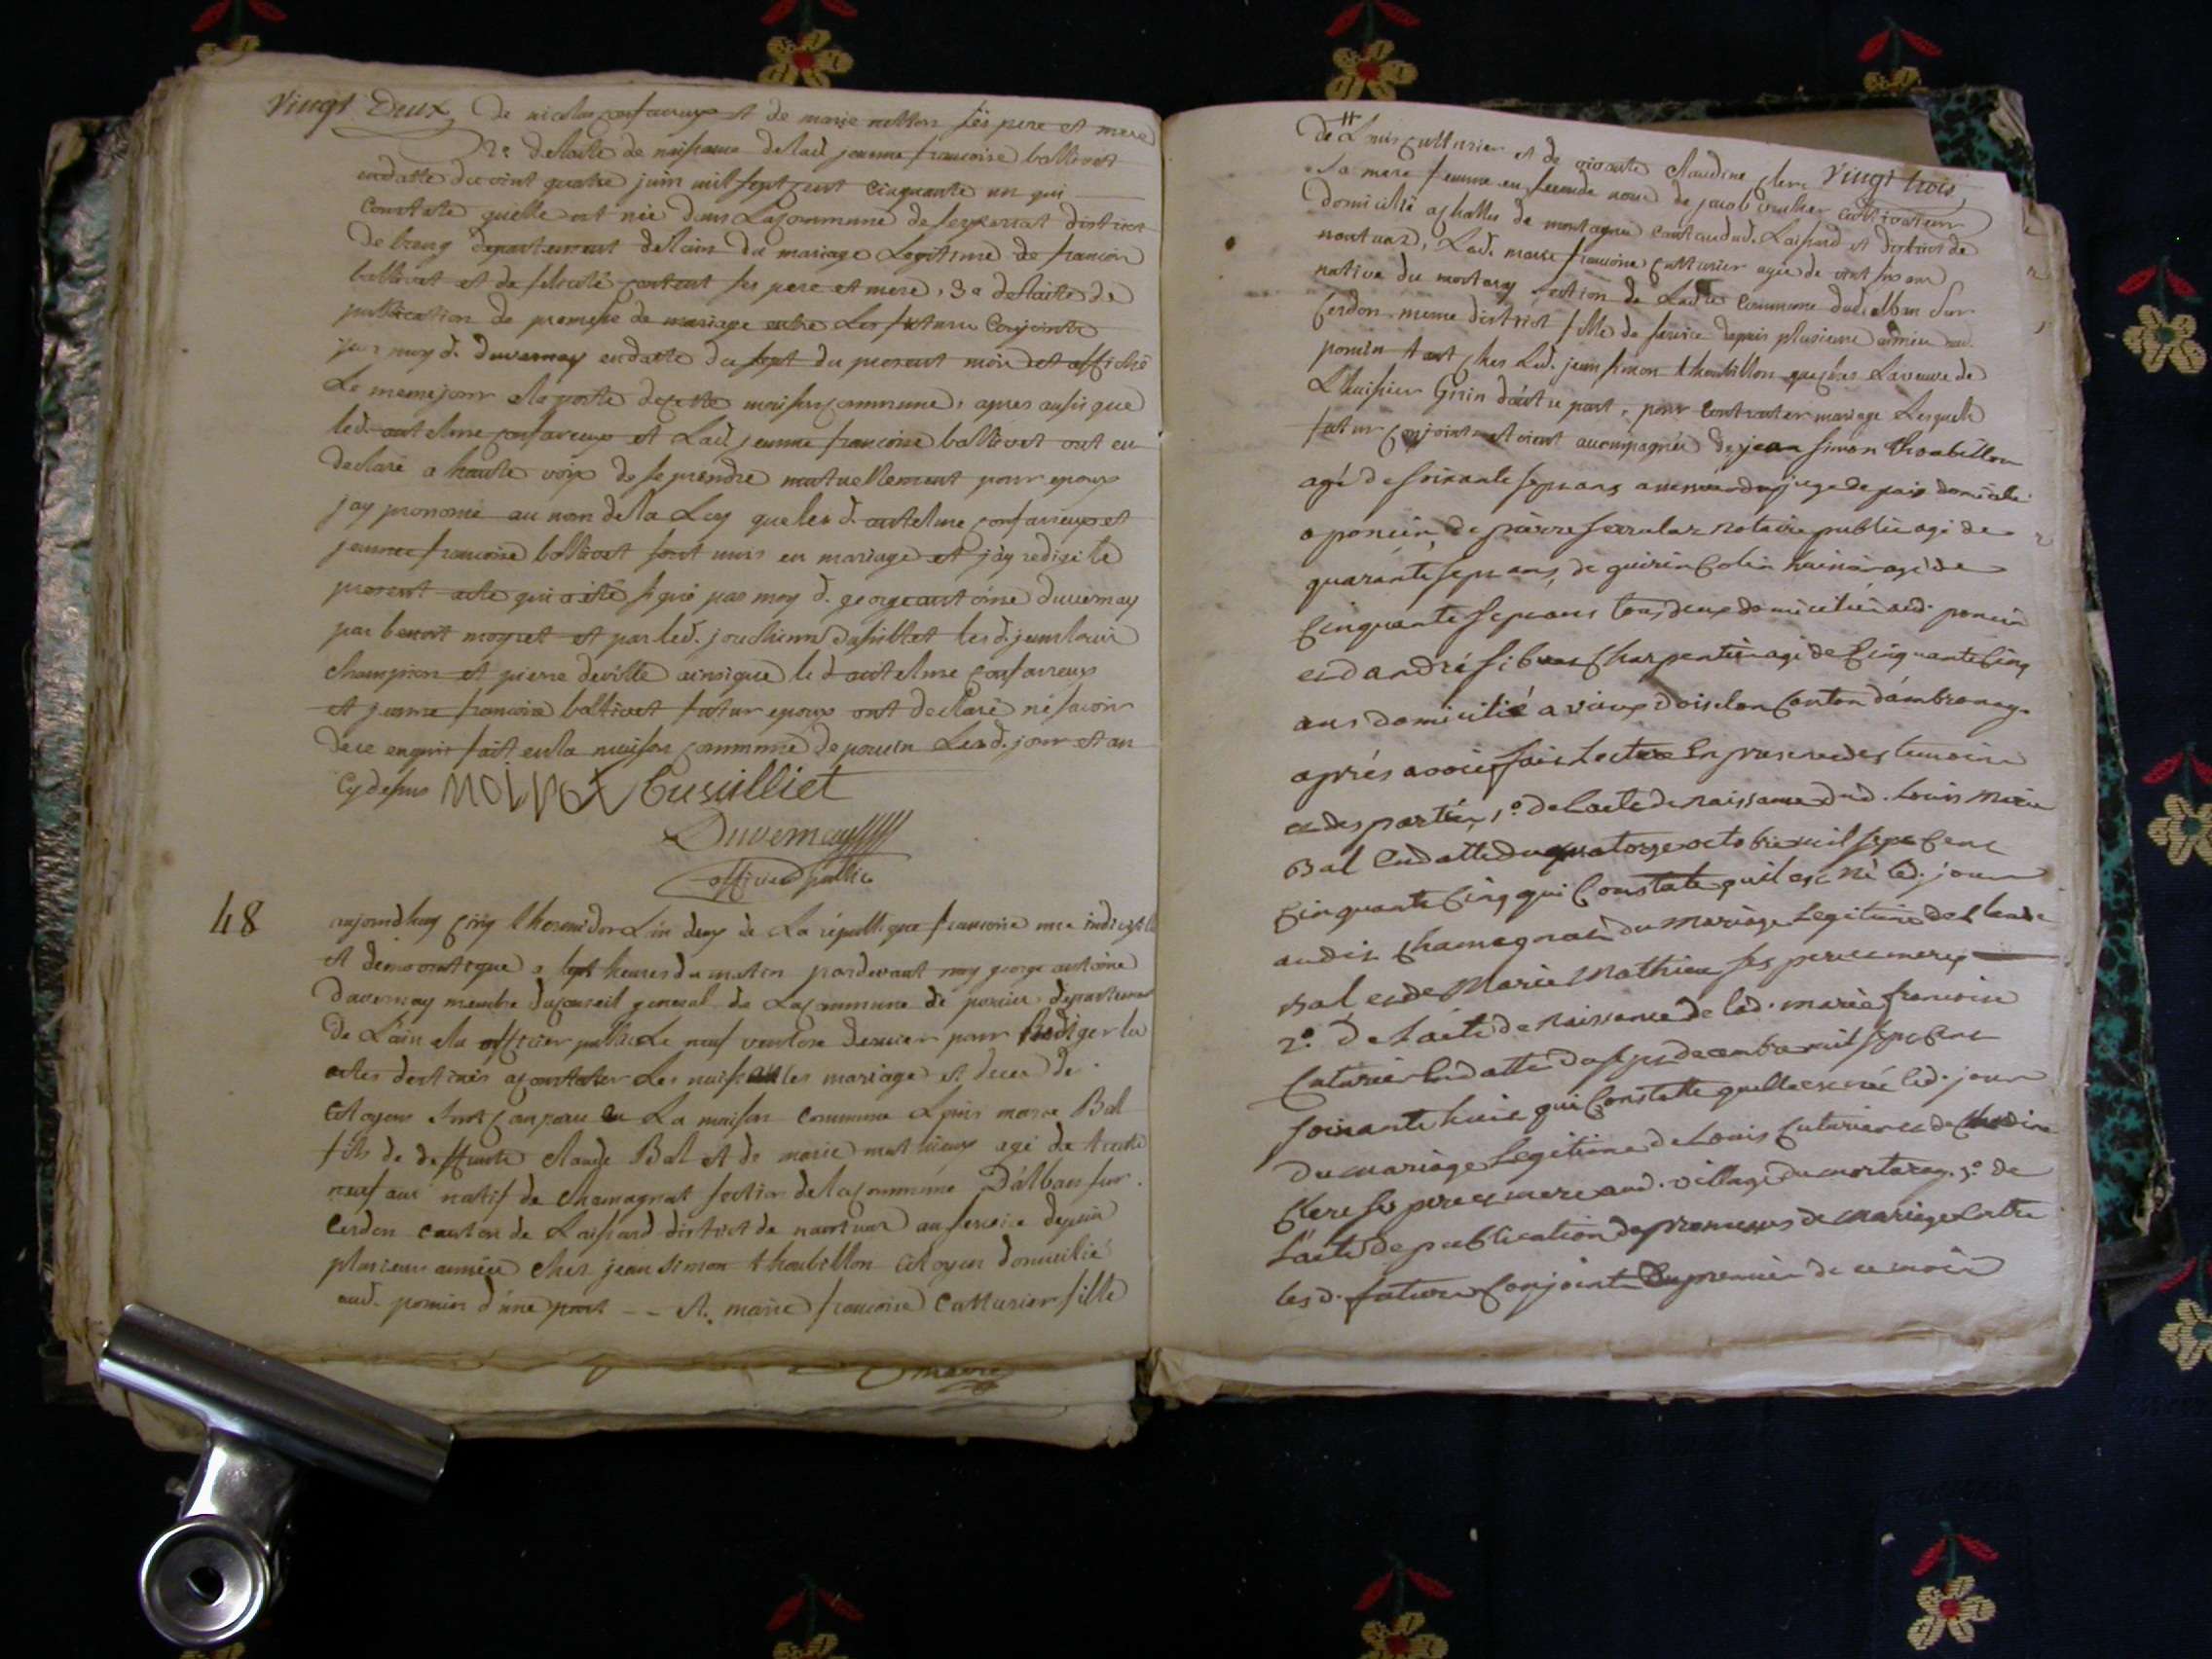 Vingt Deux
de nicolas confavreux et de marie netton ses pere et mere
2e delacte de naissance delad jeanne francoise bollivet
endatte du vint quatre juin mil sept cent cinquante un qui
constate quelle est née dans la commune de district
de bourg departement delain du mariage legitime de francois
bollivet et de ses pere et mere, 3e delacte de
publication de promesse de mariage entre les futurs conjoints
par moy d. duvernay endatte du sept du present mois et affiché
le meme jour a la porte de cette maison commune, apres aussi que
led. antelme confavreux et lad jeanne francoise bollivet ont eu
declaré a haute voix de se prendre mutuellement pour epoux
jay prononcé au nom dela Loy que les d. antelme confavreux et
jeanne francoise bollivet sont unis en mariage et jay redigé le
present acte qui a été signé par moy d. george antoine duvernay
par benoit moyret et par led. cusilliet les d. jean louis
champion et pierre deville ainsique le d antelme confavreux
et jeanne francoise bollivet futur epoux ont declaré ne savoir
de ce enquis fait en la maison commune de poncin les d. jour et an
cy dessus Cusilliet
Duvernay
officier public
48
aujourdhuy cinq thermidor Lan deux de La republique francoise une indivisible
et démocratique a sept heures du matin pardevant moy george antoine
duvernay membre du conseil general de La commune de poncin departement
de L'ain elu officier public le neuf ventose dernier pour Rediger les
actes destinés a constater Les naissances mariage et deces des
citoyens sont comparu en La maison commune Louis marie Bal
fils de deffunt claude Bal et de marie mathieux agé de trente
neuf ans natif de chamagnat section dela commune D'alban sur
cerdon canton de Laissard district de nantua au service depuis
plusieurs années ches jean simon thoubillon citoyen domicilié
aud. poncin d'une part -- et marie francoise cutturier fille
Vingt trois
de Louis cutturier et de vivante claudine clerc
sa mere femme en seconde noce de jacob cultivateur
domicilié a challes de montagne canton dud. Laissard et district de
nantua, Lad. marie francoise cutturier agée de vint six ans
native du mortaray section de Ladte commune dud alban sur
cerdon meme district fille de service depuis plusieurs années aud.
poncin tant ches Led. jean simon thoubillon que ches La veuve de
L'huissier Girin d'autre part, pour contracter mariage Lesquels
futur conjoints etoient accompagnés de jean simon thoubillon
agé de soixante sept ans assesseur du juge de paix domicilié
a poncin, de pierre notaire public agé de
quarante sept ans, de guirin colin huissier agé de
Cinquante sept ans tous deux domiciliés aud. poncin
et d'andré charpentier agé de Cinquante Cinq
ans domicilié a vieux d'oiselon Canton d'ambronay
aprés avoir fait Lecture En presence des temoins
et des parties, 1.o de Lacte de naissance dud. Louis Marie
Bal Endatte du quatorze octobre mil sept Cent
Cinquante Cinq qui Constate quil est né led. jour
audit Chamagnat du mariage Legitime de Claude
Bal et de Marie Mathieu ses pere et mere
2.o De Lacte de Naissance de lad. marie francoise
Cuturier Endatte du sept decembre mil sept Cent
soixante huit qui Constatte quelle est née led. jour
du mariage Legitime de Louis Cuturier et de Claudine
Clerc ses pere et mere aud. village du mortaray. 3.o de
L'acte de publication de promesses de mariage Entre
les d. futurs Conjoints Du premier de ce mois
maire